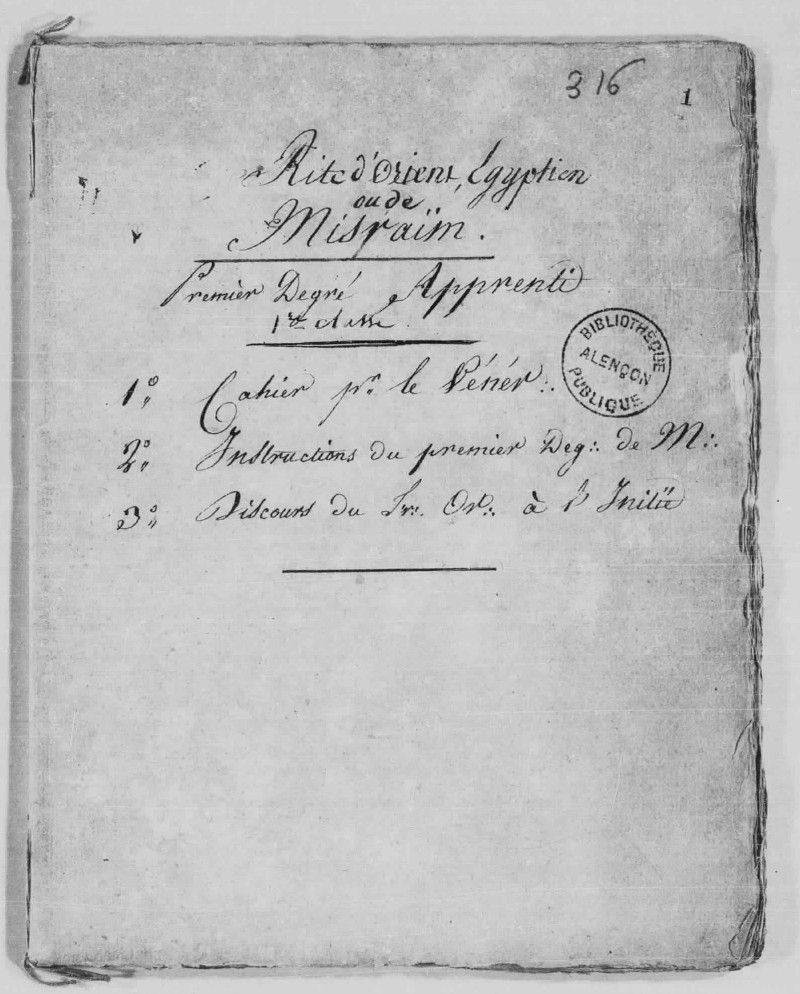 316
1
Rite d'Orient, Egyptien
ou de
Misraïm.
Premier Degré Apprenti
1re classe.
BIBLIOTHÈQUE
ALENÇON
PUBLIQUE
1°,, Cahier pr. le Vénér∴
2°,, Instructions du premier Deg∴ de M∴
3°,, Discours du Fr∴ Or∴ à l'Initié